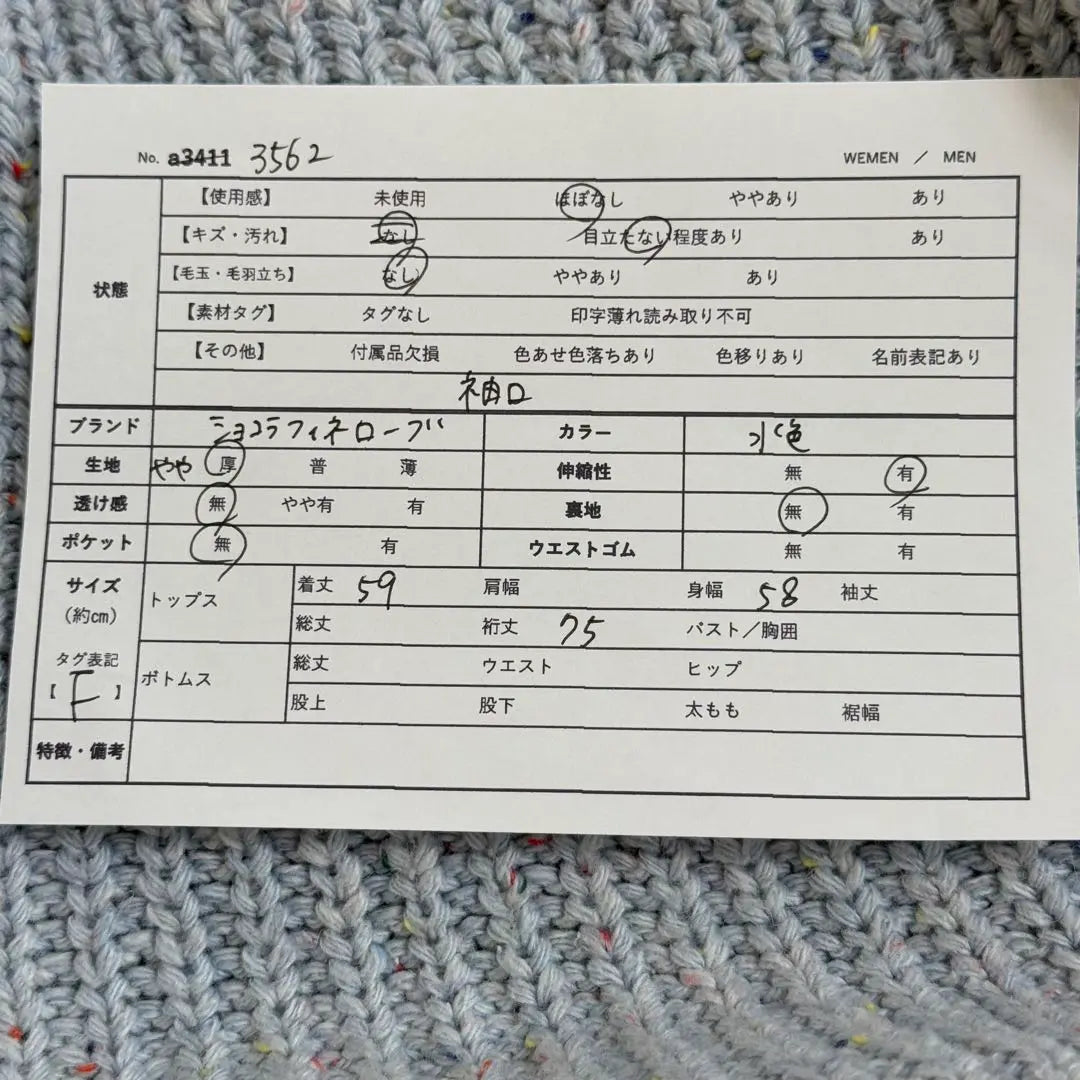 No. a3411 3562 WEMEN / MEN
状態
【使用感】 未使用 ほぼなし ややあり あり
【キズ・汚れ】 なし 目立たない程度あり あり
【毛玉・毛羽立ち】 なし ややあり あり
【素材タグ】 タグなし 印字薄れ読み取り不可
【その他】 付属品欠損 色あせ色落ちあり 色移りあり 名前表記あり
袖口
ブランド ショコラフィネローブ カラー 水色
生地 やや 厚 普 薄 伸縮性 無 有
透け感 無 やや有 有 裏地 無 有
ポケット 無 有 ウエストゴム 無 有
サイズ (約cm) トップス 着丈 59 肩幅 身幅 58 袖丈
総丈 裄丈 75 バスト／胸囲
タグ表記 【F】 ボトムス 総丈 ウエスト ヒップ
股上 股下 太もも 裾幅
特徴・備考